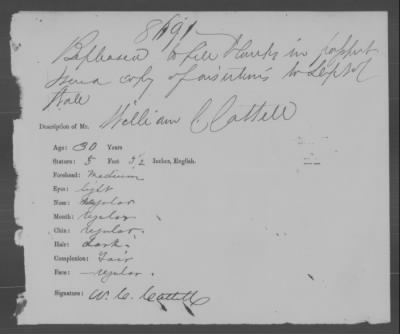 8691
Be pleased to fill blanks in passport
send a copy of to Dept of
State
Description of Mr. William C. Cattell
Age: 30 Years
Stature: 5 Feet 5½ Inches, English.
Forehead: Medium
Eyes: light
Nose: regular
Mouth: regular
Chin: regular.
Hair: dark.
Complexion: Fair
Face: regular.
Signature: W. C. Cattell